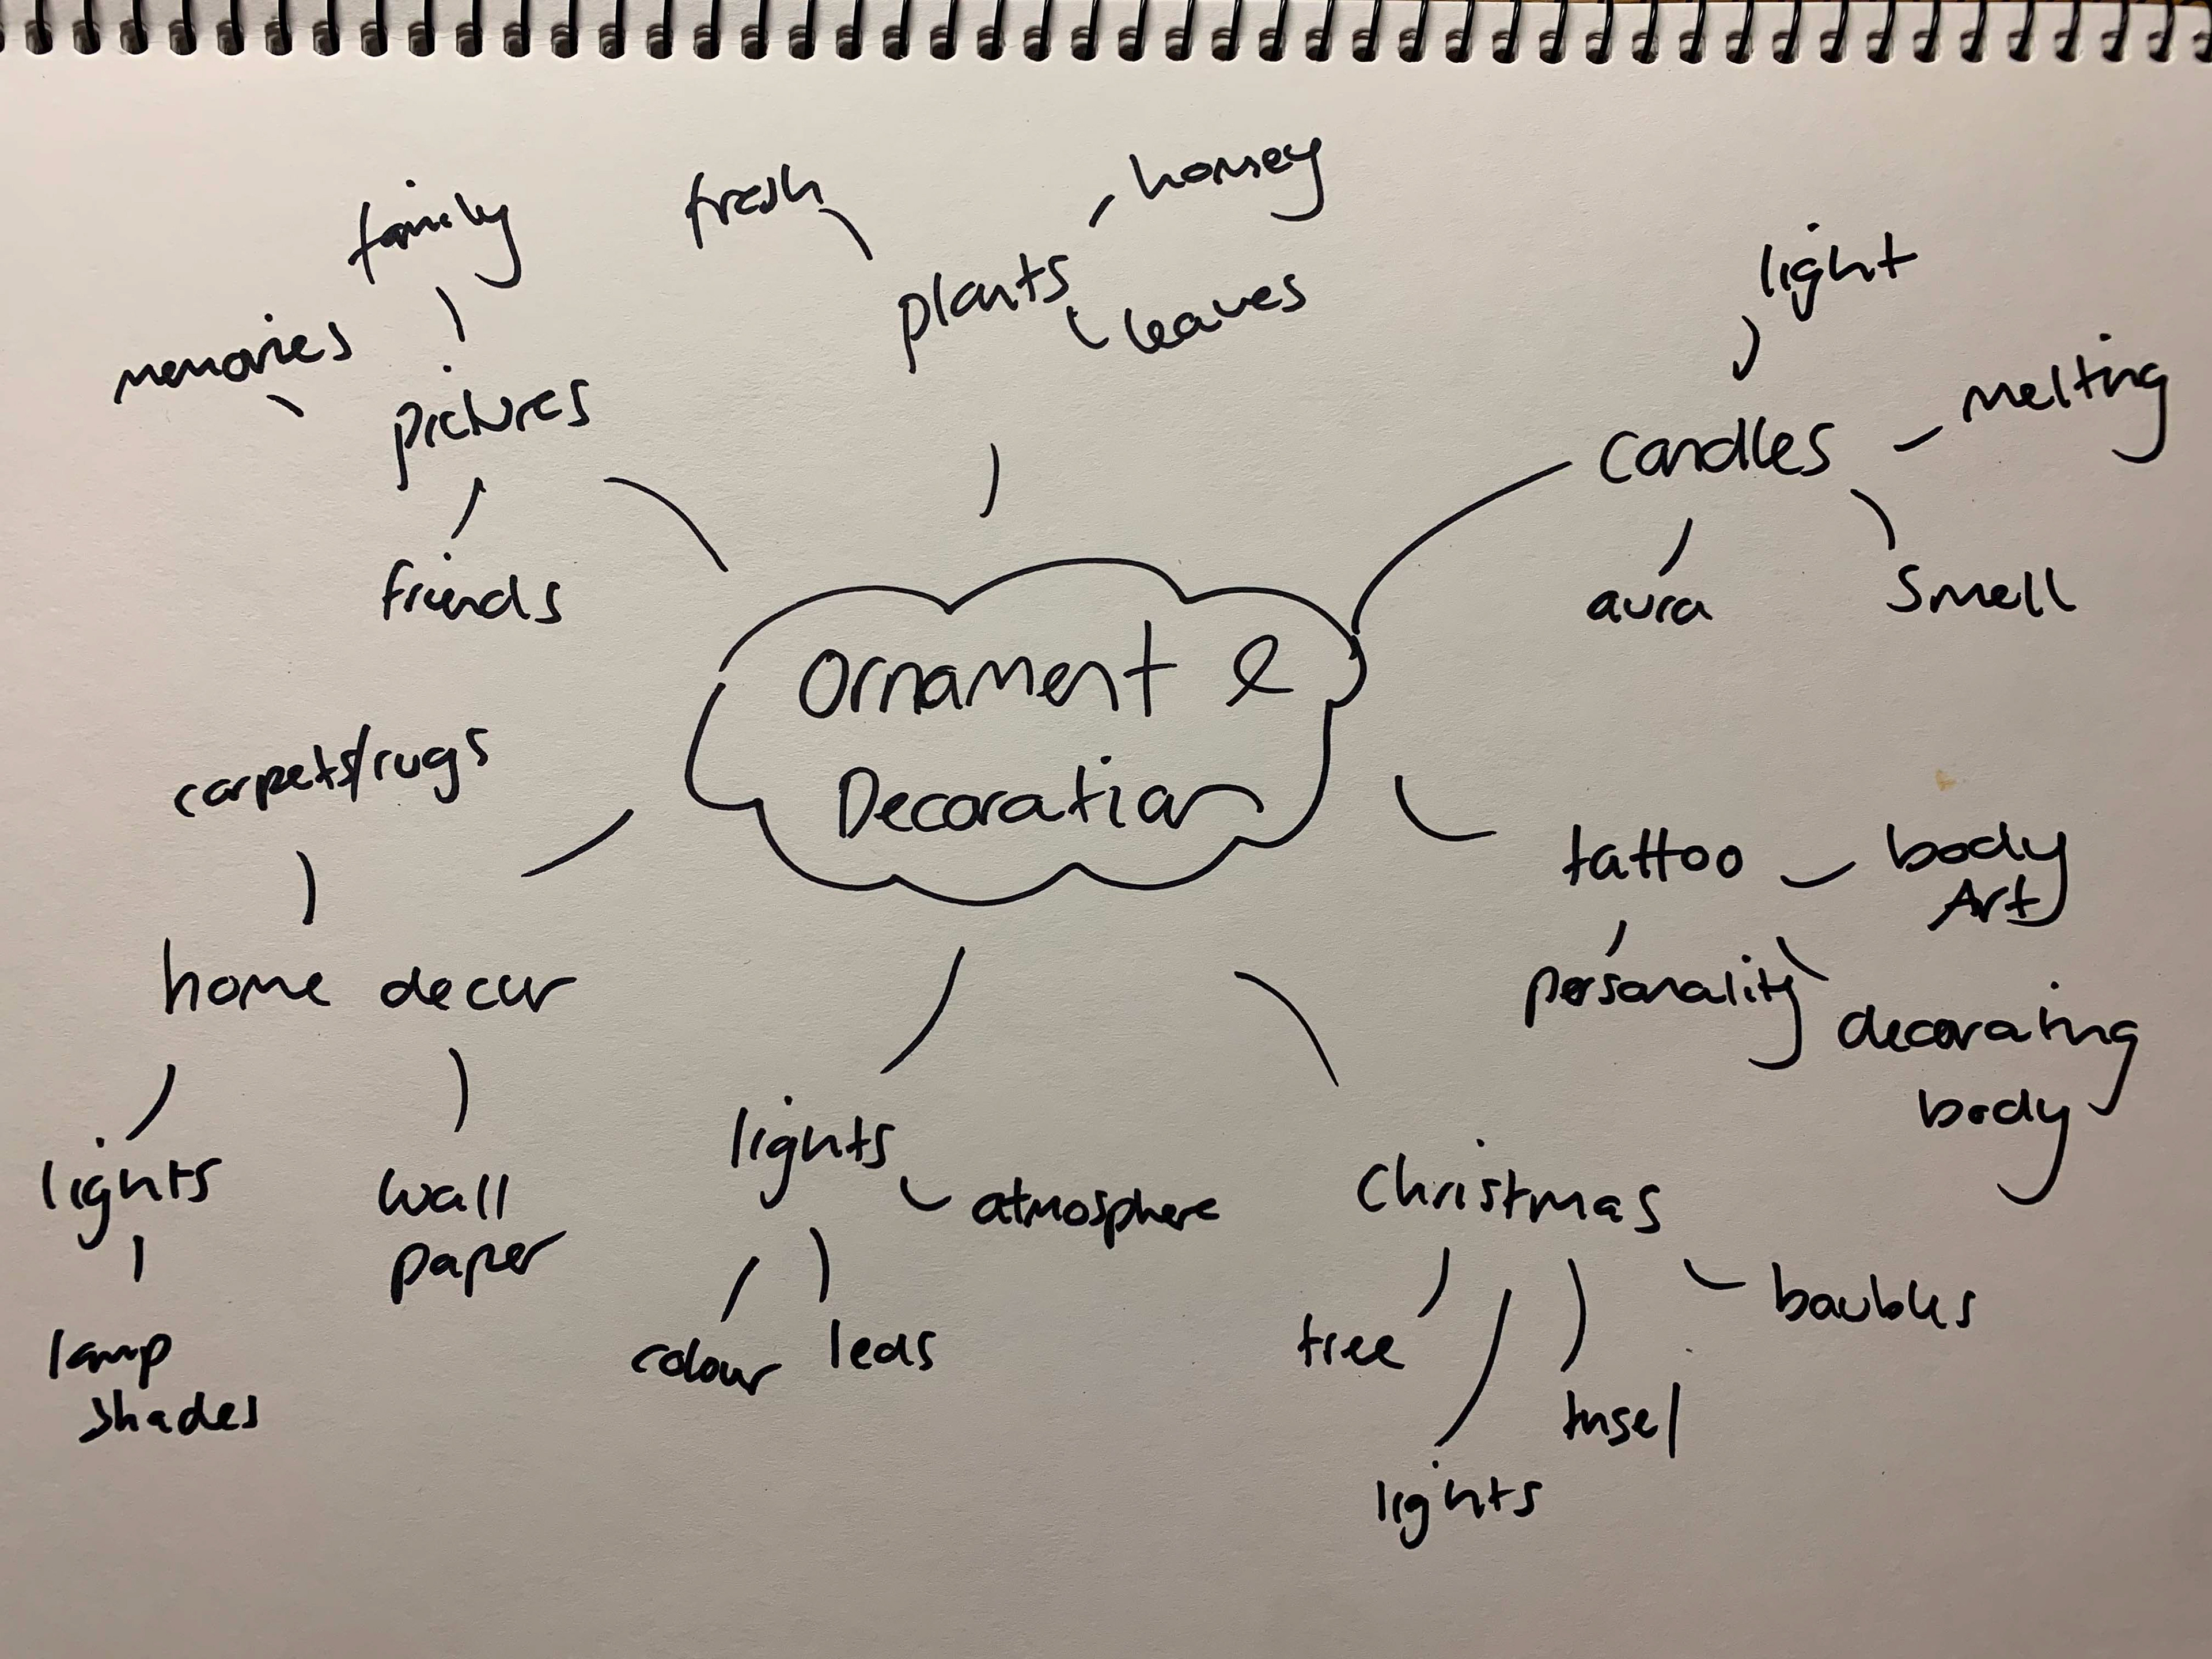 Ornament &
Decoration
plants
fresh
homey
leaves
candles
light
melting
smell
aura
tattoo
body
Art
personality
decorating
body
christmas
baubles
tinsel
lights
tree
lights
atmosphere
leds
colour
home decor
carpets/rugs
wall
paper
lights
lamp
shades
pictures
family
memories
friends